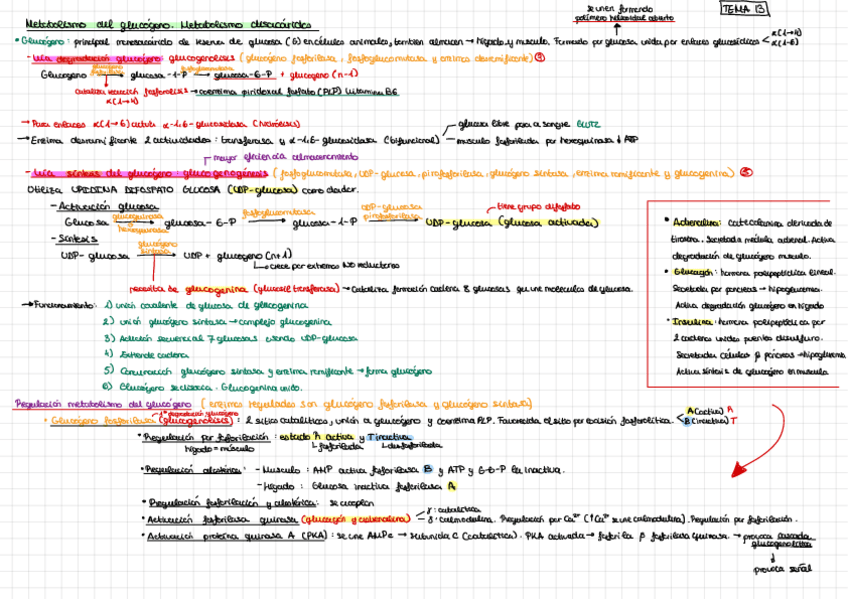 se unen formando
polímero helicoidal abierto
TEMA 13
Metabolismo del glucógeno. Metabolismo disacáridos
• Glucógeno: principal monosacárido de reserva de glucosa (G) en células animales, también almacen → hígado y musculo. Formado por glucosa unida por enlaces glucosídicos < α(1→4)
α(1→6)
- Vía degradación glucógeno: glucogenolisis (glucógeno fosforilasa, fosfoglucomutasa y enzima desramificante)
glucógeno fosforilasa
fosfoglucomutasa
Glucogeno → glucosa-1-P → glucosa-6-P + glucogeno (n-1)
cataliza reacción fosforolisis → coenzima piridoxal fosfato (PLP) Vitamina B6
α(1→4)
→ Para enlaces α(1→6) actúa α-1,6-glucosidasa (hidrólisis)
glucosa libre pasa a sangre GLUT2
→ Enzima desramificante 2 actividades: transferasa y α-1,6-glucosidasa (bifuncional)
musculo fosforilada por hexoquinasa ↓ ATP
mayor eficiencia almacenamiento
- Vía síntesis del glucógeno: glucogenogénesis (fosfoglucomutasa, UDP-glucosa, pirofosforilasa, glucógeno sintasa, enzima ramificante y glucogenina)
Utiliza URIDINA DIFOSFATO GLUCOSA (UDP-glucosa) como dador.
- Activación glucosa
tiene grupo difosfato
glucoquinasa
hexoquinasa
fosfoglucomutasa
UDP-glucosa
pirofosforilasa
Glucosa → glucosa-6-P → glucosa-1-P → UDP-glucosa (glucosa activada)
- Síntesis
glucógeno
sintasa
UDP-glucosa → UDP + glucogeno (n+1)
crece por extremos NO reductores
necesita de glucogenina (glucosil transferasa) → Cataliza formación cadena 8 glucosas que une moleculas de glucosa.
→ Funcionamiento: 1) unión covalente de glucosa de glucogenina
2) unión glucógeno sintasa → complejo glucogenina
3) Adición secuencial 7 glucosas usando UDP-glucosa
4) Extiende cadena
5) Continuación glucógeno sintasa y enzima ramificante → forma glucógeno
6) Glucógeno se disocia. Glucogenina unido.
• Adrenalina: catecolamina derivada de
tirosina. Secretada médula adrenal. Activa
degradación de glucógeno musculo.
• Glucagón: hormona polipeptídica lineal.
Secretada por páncreas → hipoglucemia.
Activa degradación glucógeno en hígado
• Insulina: hormona polipeptídica por
2 cadenas unidas puentes disulfuro.
Secretadas células β páncreas → hiperglucemia
Activa síntesis de glucógeno en musculo.
Regulación metabolismo del glucógeno (enzimas reguladas son glucógeno fosforilasa y glucógeno sintasa)
1ª degradación glucógeno
• Glucógeno fosforilasa (glucogenolisis): 2 sitios catalíticos, unión a glucógeno y coenzima PLP. Favorecida al sitio por escisión fosforolítica. < A (activa) R
B (inactiva) T
• Regulación por fosforilación: estado R activa y T inactiva
hígado = músculo
fosforilada
desfosforilada
• Regulación alostérica: - Musculo: AMP activa fosforilasa B y ATP y G-6-P la inactiva.
- Hígado: Glucosa inactiva fosforilasa A
• Regulación fosforilación y alostérica: se acoplan
• Activación fosforilasa quinasa (glucagón y adrenalina)
γ: catalítica
δ: calmodulina. Regulación por Ca²⁺ (↑Ca²⁺ se une calmodulina). Regulación por fosforilación.
• Activación proteína quinasa A (PKA): se une AMPc → subunidad C (catalítica). PKA activada → fosforila β fosforilasa quinasa. → provoca cascada
glucogenolítica
provoca señal